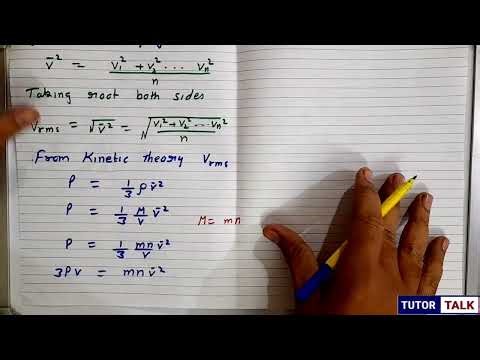 v̄² = v₁² + v₂² ... vₙ² / n
Taking root both sides
Vrms = √v̄² = √(v₁² + v₂² ... vₙ² / n)
From Kinetic theory Vrms
P = 1/3 ρ v̄²
P = 1/3 M/V v̄²
M = mn
P = 1/3 mn/V v̄²
3PV = mn v̄²
TUTOR TALK